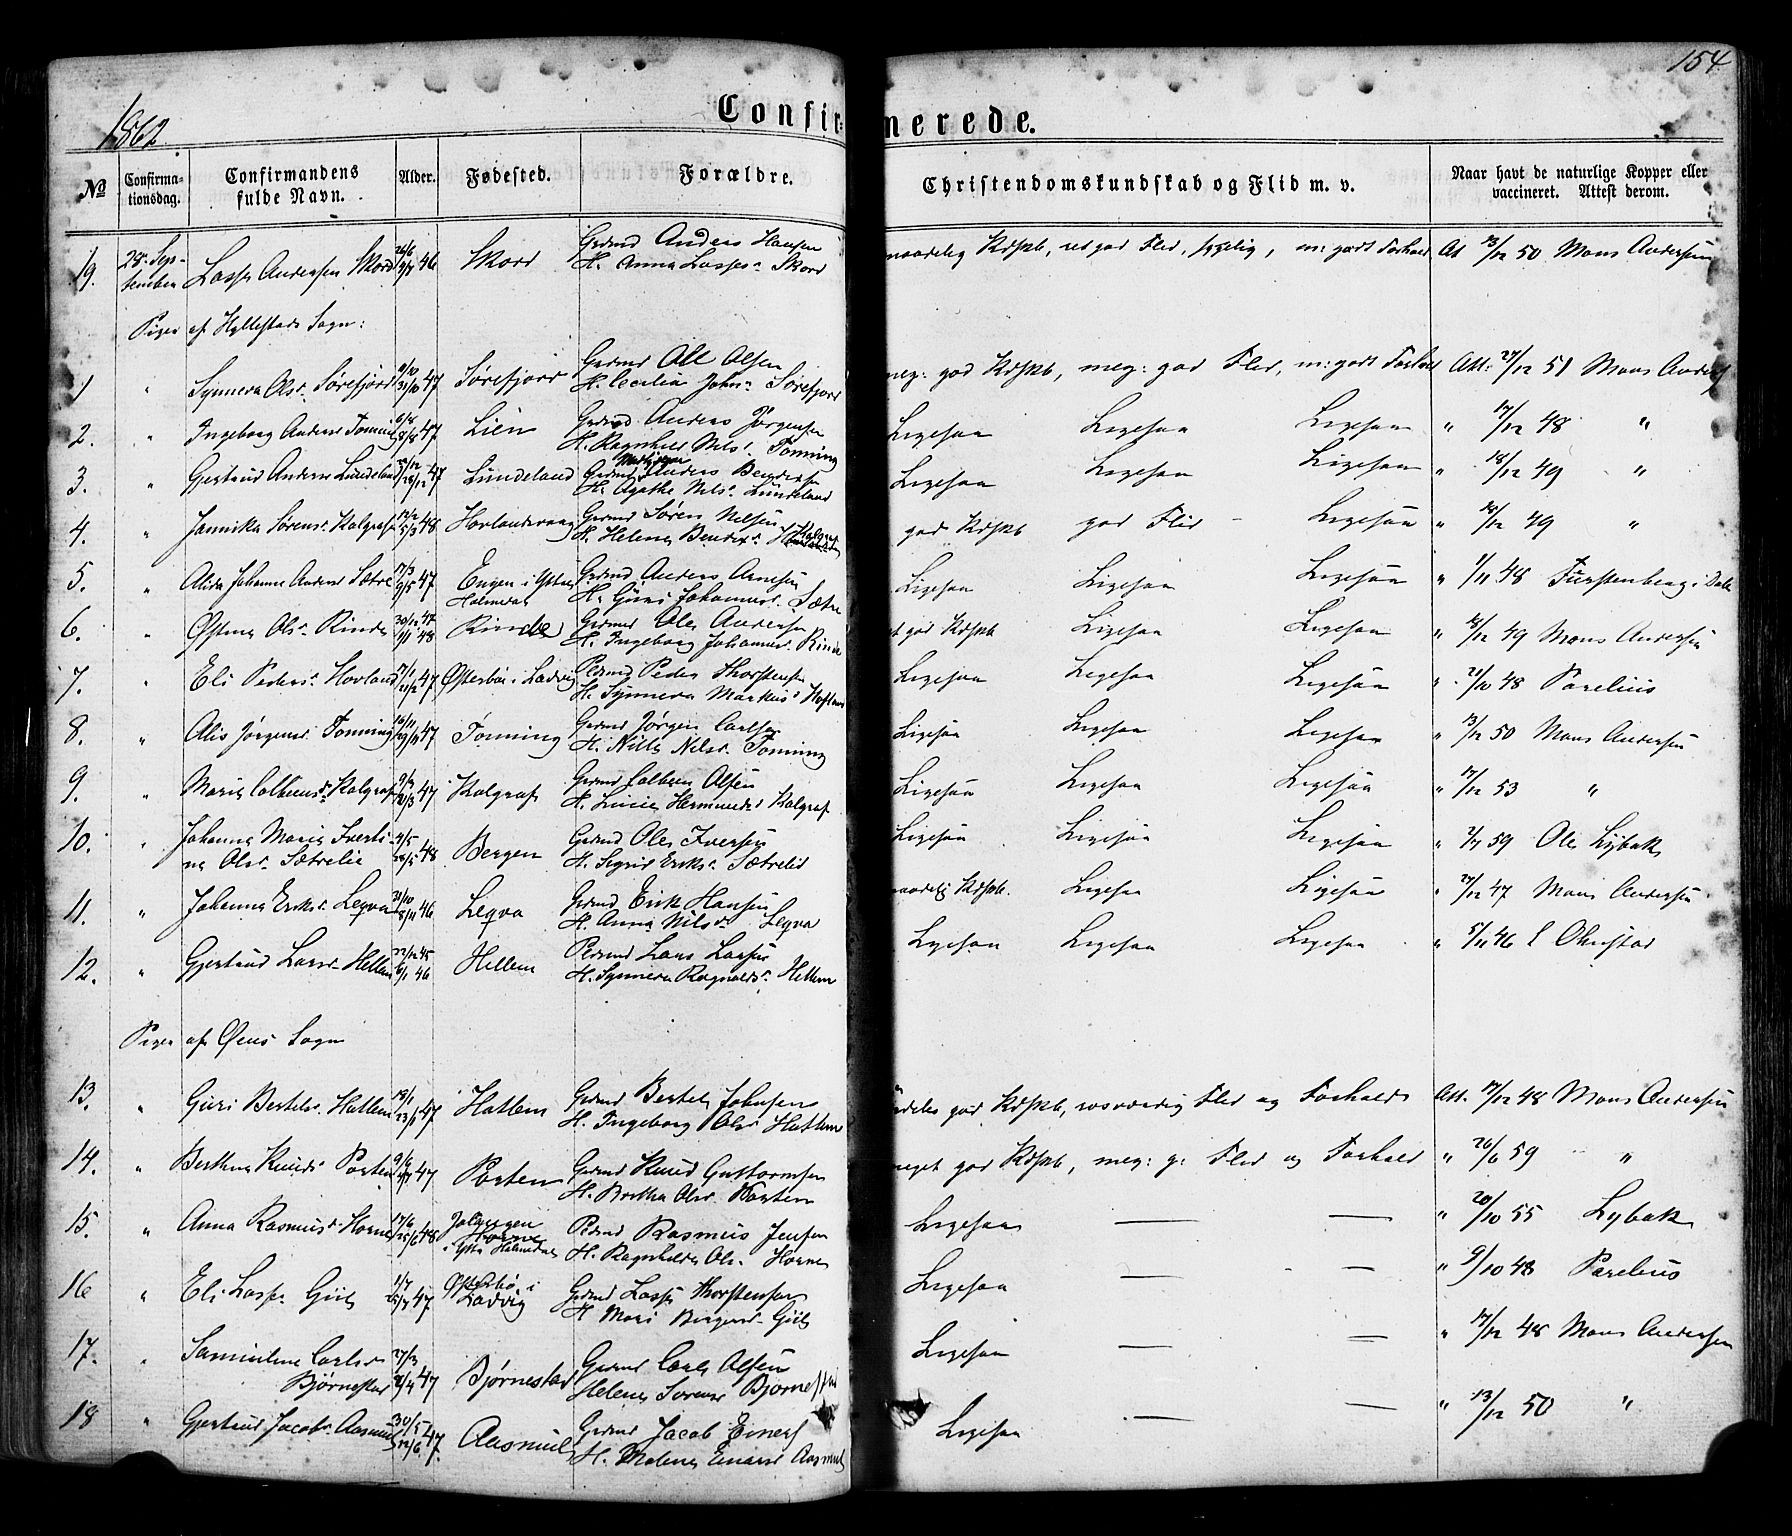 154
1862
Confir- merede.
No Confirmationsdag. Confirmandens fulde Navn. Alder. Fødested. Forældre. Christendomskundskab og Flid m. v. Naar havt de naturlige Kopper eller vaccineret. Attest derom.
19. 28 September Lasse Andersen Skord 46 Skord Grdmd Anders Hansen H. Anna Lasses. Skord maadelig Kdskb, god Flid, m: godt Forhold At 13/12 50 Mons Andersen
Piger af Hyllestads Sogn:
1 " Synneva Olsr. Sørefjord 9/10 31/10 47 Sørefjord Grdmd Ole Olsen H. Cecilia Johns. Sørefjord meg: god Kdskb, meg: god Flid, m: godt Forhold Att: 27/12 51 Mons Anders
2. " Ingeborg Andersr Tonning 47 Lien Grdmd Anders Jørgensen H. Ragnhild Nils. Tonning Ligesaa Ligesaa Ligesaa " 17/12 48 "
3. " Gjertrud Anders. Lündeland 47 Lündeland Grdmd Anders H. Agathe Nils. Lündeland Ligesaa Ligesaa Ligesaa " 18/12 49 "
4. " Jannika Sørens. Kolgraf 5/3 48 Grdmd Søren Nilsen H. Helene Bendix. Kolgraf god Kdskb god Flid - Ligesaa " 49 "
5. " Alida Johanne Anders Sætre 17/3 9/5 47 Engen i Ytre Holmedal Grdmd Anders Arnesen H. Güri Johannes. Sætre Ligesaa Ligesaa Ligesaa " 1/11 48 Fürstenberg i Dale
6. " Olsr. Rinde 30/12 47 1/1 48 Rinde Grdmd Ole Andersen H. Ingeborg Johannes. Rinde god Kdskb Ligesaa Ligesaa " 49 Mons Andersen
7. " Eli Peders. Hovland 47 Østerbø i Ladvig Plsmd Peder Thorstensen H. Synneva Markus. Ligesaa Ligesaa Ligesaa " 48 Parelius
8. " Alis Jørgens. Tonning 47 Tonning Grdmd Jørgen Carlsen H. Nille Nils. Tonning Ligesaa Ligesaa Ligesaa " 13/12 50 Mons Andersen
9. " Maria Colbens. Kolgraf 47 Kolgraf Grdmd Colben Olsen H. Hermunds. Kolgraf Ligesaa Ligesaa Ligesaa " 17/12 53 "
10. " Johanna Maria Ivertina Olsr. Sætrelid 4/5 28/5 48 Bergen Grdmd Ole Iversen H. Sigrid Eriks. Sætrelid Ligesaa Ligesaa Ligesaa " 59 Ole Lybak
11. " Johanna Eriks. Leqva 46 Leqva Grdmd Erik Hansen H. Anna Nils. Leqva maadelig Kdskb. Ligesaa Ligesaa " 27/12 47 Mons Andersen
12. " Gjertrud Larsr. Hellem 22/12 45 6/1 46 Hellem Plsmd Lars Larsen H. Synneva Ragnalds. Hellem Ligesaa Ligesaa Ligesaa " 5/11 46
Piger af Øens Sogn
13. " Güri Bertels. Hatlem 18/1 23/1 47 Hatlem Grdmd Bertel Johnsen H. Ingeborg Olsr Hatlem god Kdskb, rosværdig Flid og Forhold Att. 17/12 48 Mons Andersen
14. " Berthe Knuds. Porten 47 Porten Grdmd Knud Guttormsen H. Brithe Olsr. Porten meget god Kdskb, meg: g: Flid og Forhold " 26/6 59 "
15. " Anna Rasmus. Horne 17/6 25/6 48 Horne i Ytre Holmedal Plsmd Rasmus Jensen H. Ragnhilde Ols. Horne Ligesaa — — " 20/10 55 Lybak
16 " Eli Lasse. Giil 47 Østerbø i Ladvig Grdmd Lasse Thorstensen H Mari Giil Ligesaa — — " 9/10 48 Parelius
17. " Samueline Carls. Bjørnestad 47 Bjørnestad Grdmd Carl Olsen Helene Sørens. Bjørnestad Ligesaa — — " 17/12 48 Mons Andersen
18 " Gjertrud Jacobs. Aasmul 30/5 12/6 47. Aasmul Grdmd Jacob Einers H. Malene Einars. Aasmul Ligesaa — — " 13/12 50 "